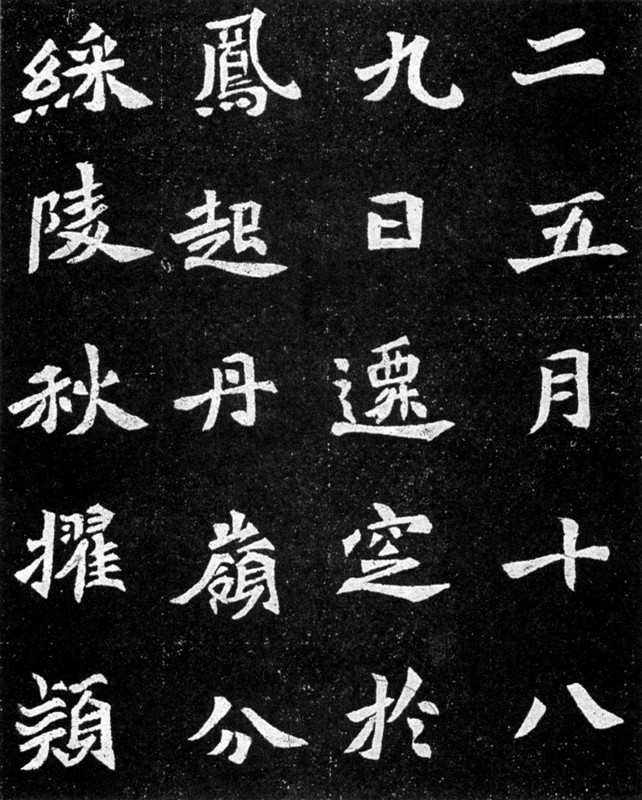 二五月十八
九日遷窆於
鳳起丹嶺分
綵陵秋擢穎